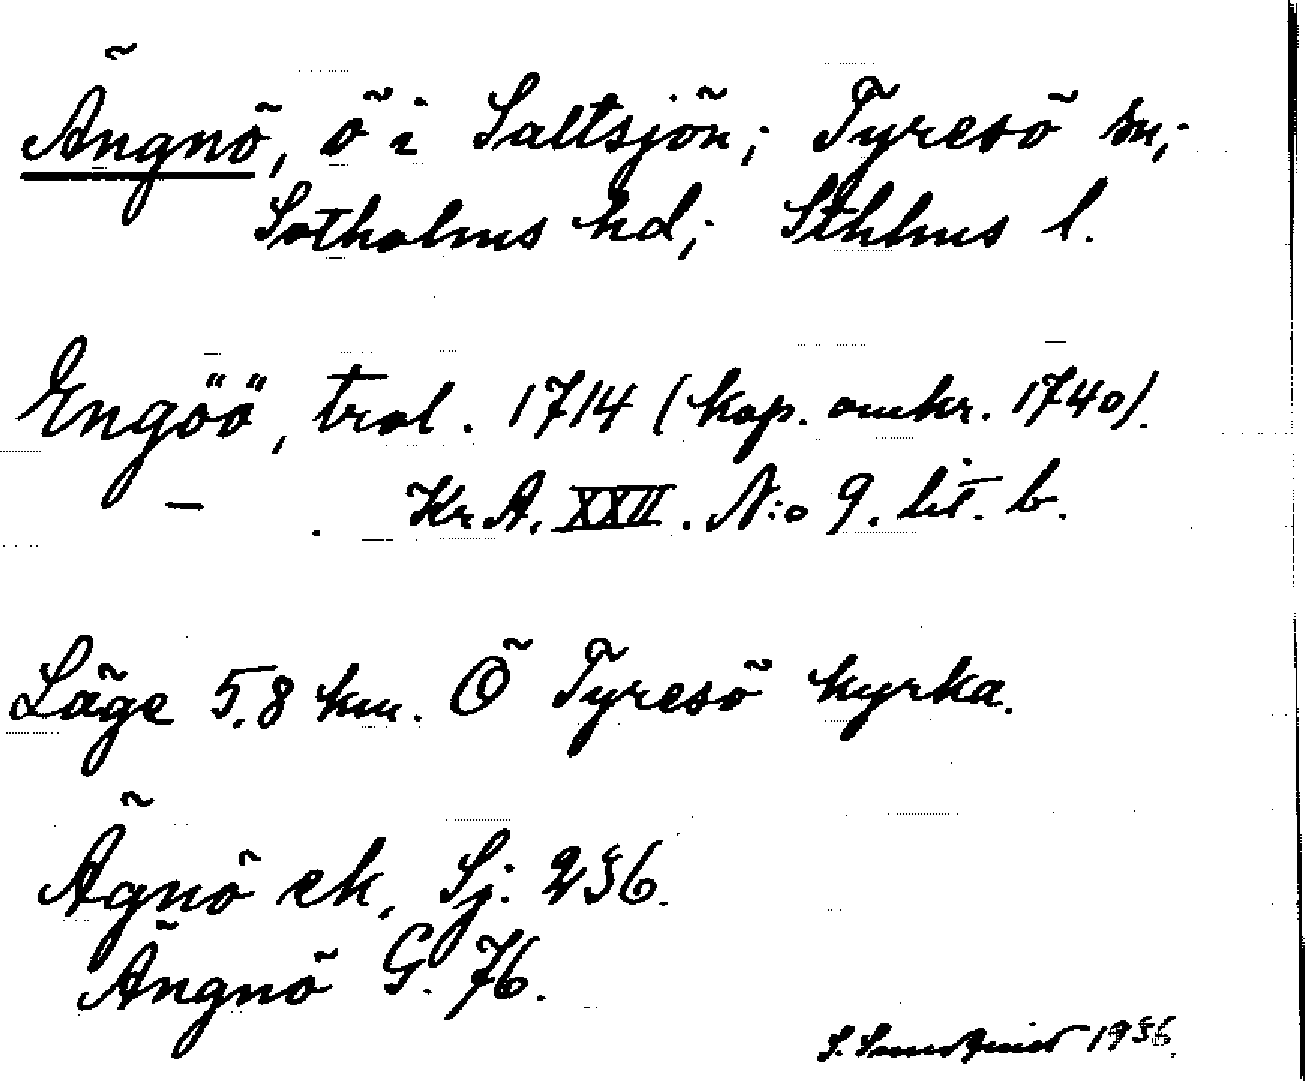 Ängnö, ö i Saltsjön; Tyresö sn;
Sotholms hd; Sthlms l.
Engöö, trol. 1714 (kop. omkr. 1740).
— . Kr. A. XXII. N:o 9. lit. b.
Läge 5.8 km. Ö Tyresö kyrka.
Ägnö ek, Sj. 236.
Ängnö G. 76.
S. 1936.